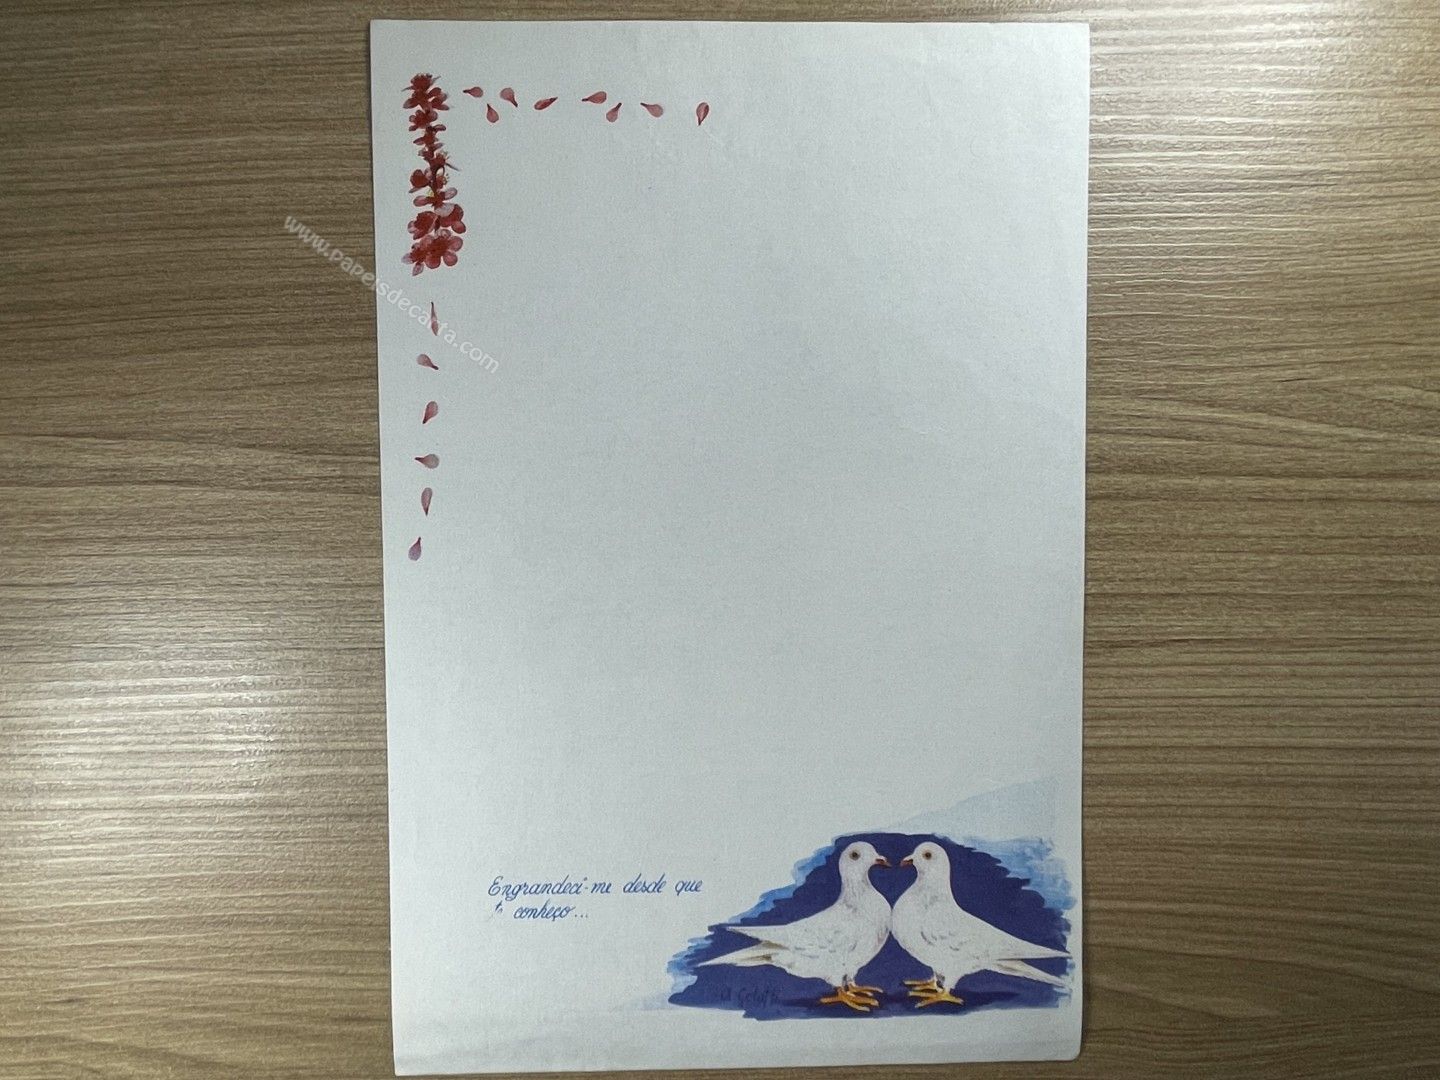 www.papeisdecarta.com
Engrandeci-me desde que
te conheço...